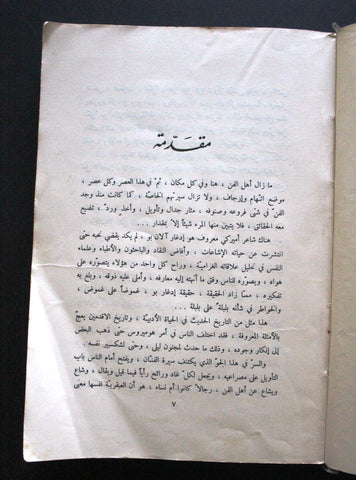 مقدّمة
ما زال أهل الفن ، هنا وفي كل مكان ، ثم في هذا العصر وكل عصر ،
موضع اتهام وإرجاف ، ولا تزال سيرتهم الخاصة ، كما كانت منذ وجد
الفن في شتى فروعه وصنوفه ، مثار جدال وتأويل ، وأخذ ورد ، تضيع
معه الحقائق ، فلا يتبين منها المرء شيئاً إلا بمقدار .
هناك شاعر أميركي معروف هو إدغار آلان بو ، لم يكد يقضي نحبه حتى
انتشرت عن حياته الإشاعات ، وأفاض النقاد والباحثون والأطباء وعلماء
النفس في تحليل علاقاته الغرامية ، وراح كل واحد من هؤلاء يتصوره على
هواه ، ويصوره للناس وفق ما انتهت إليه معارفه ، وأملى عليه ذوقه ، وبلغ به
إدراكه ، مما زاد الحقيقة ، حقيقة إدغار بو ، غموضاً على غموض ،
والخواطر في شأنه بلبلة على بلبلة ...
هذا مثل من التاريخ الحديث في الحياة الأدبية ، وتاريخ الأقدمين يعج
بالأمثلة المعروفة ، فقد اختلف الناس في أمر هوميروس حتى ذهب البعض
إلى إنكار وجوده ، وذلك ما حدث لمجنون ليلى ، وحتى لشكسبير نفسه .
والسر في هذا الجو الذي يكتنف سيرة الفنان ، ويفتح أمام الناس باب
التأويل على مصراعيه ، ويجعل لكل غاد ورائح رأياً فيما قيل ويقال ، وشاع
ويشاع عن أهل الفن ، رجالاً كانوا أم نساء ، هو أن العبقرية نفسها معنى
٧